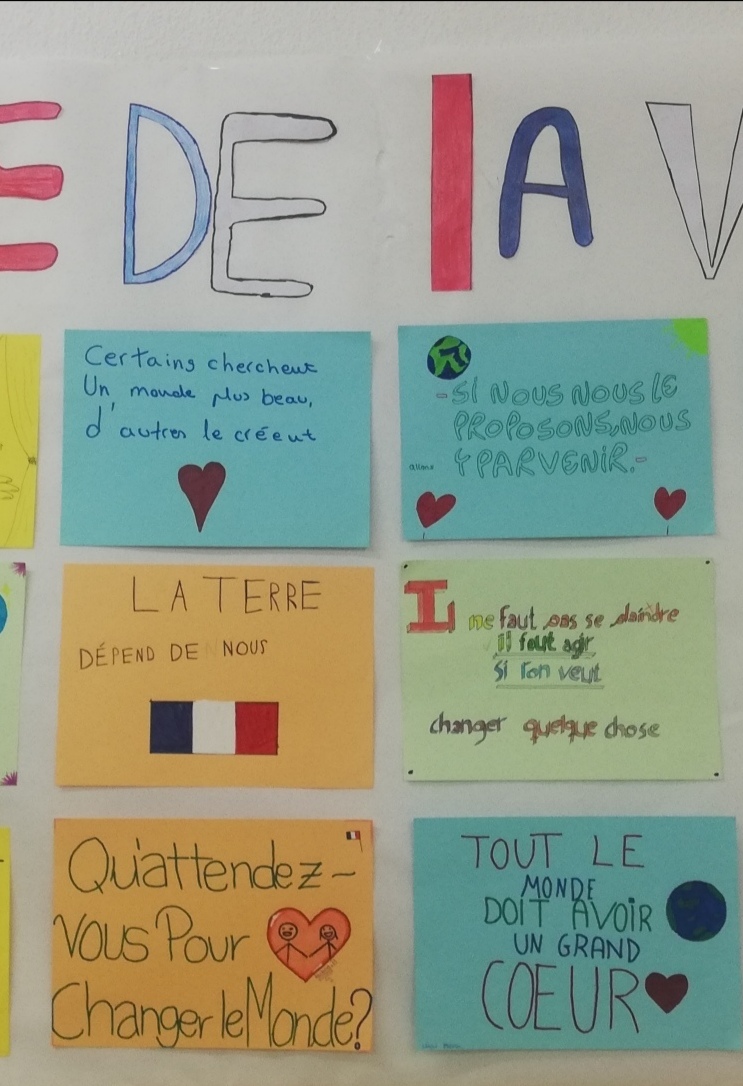 E DE lA V
Certains cherchent
Un monde plus beau,
d'autres le créent
-Si NOUS NOUS lE
PROPOSONS, NOUS
allons Y PARVENIR.-
LA TERRE
DÉPEND DE NOUS
Il ne faut pas se plaindre
Il faut agir
Si l'on veut
changer quelque chose
Qu'attendez-
vous Pour
Changer le Monde?
TOUT LE
MONDE
DOIT AVOiR
UN GRAND
COEUR